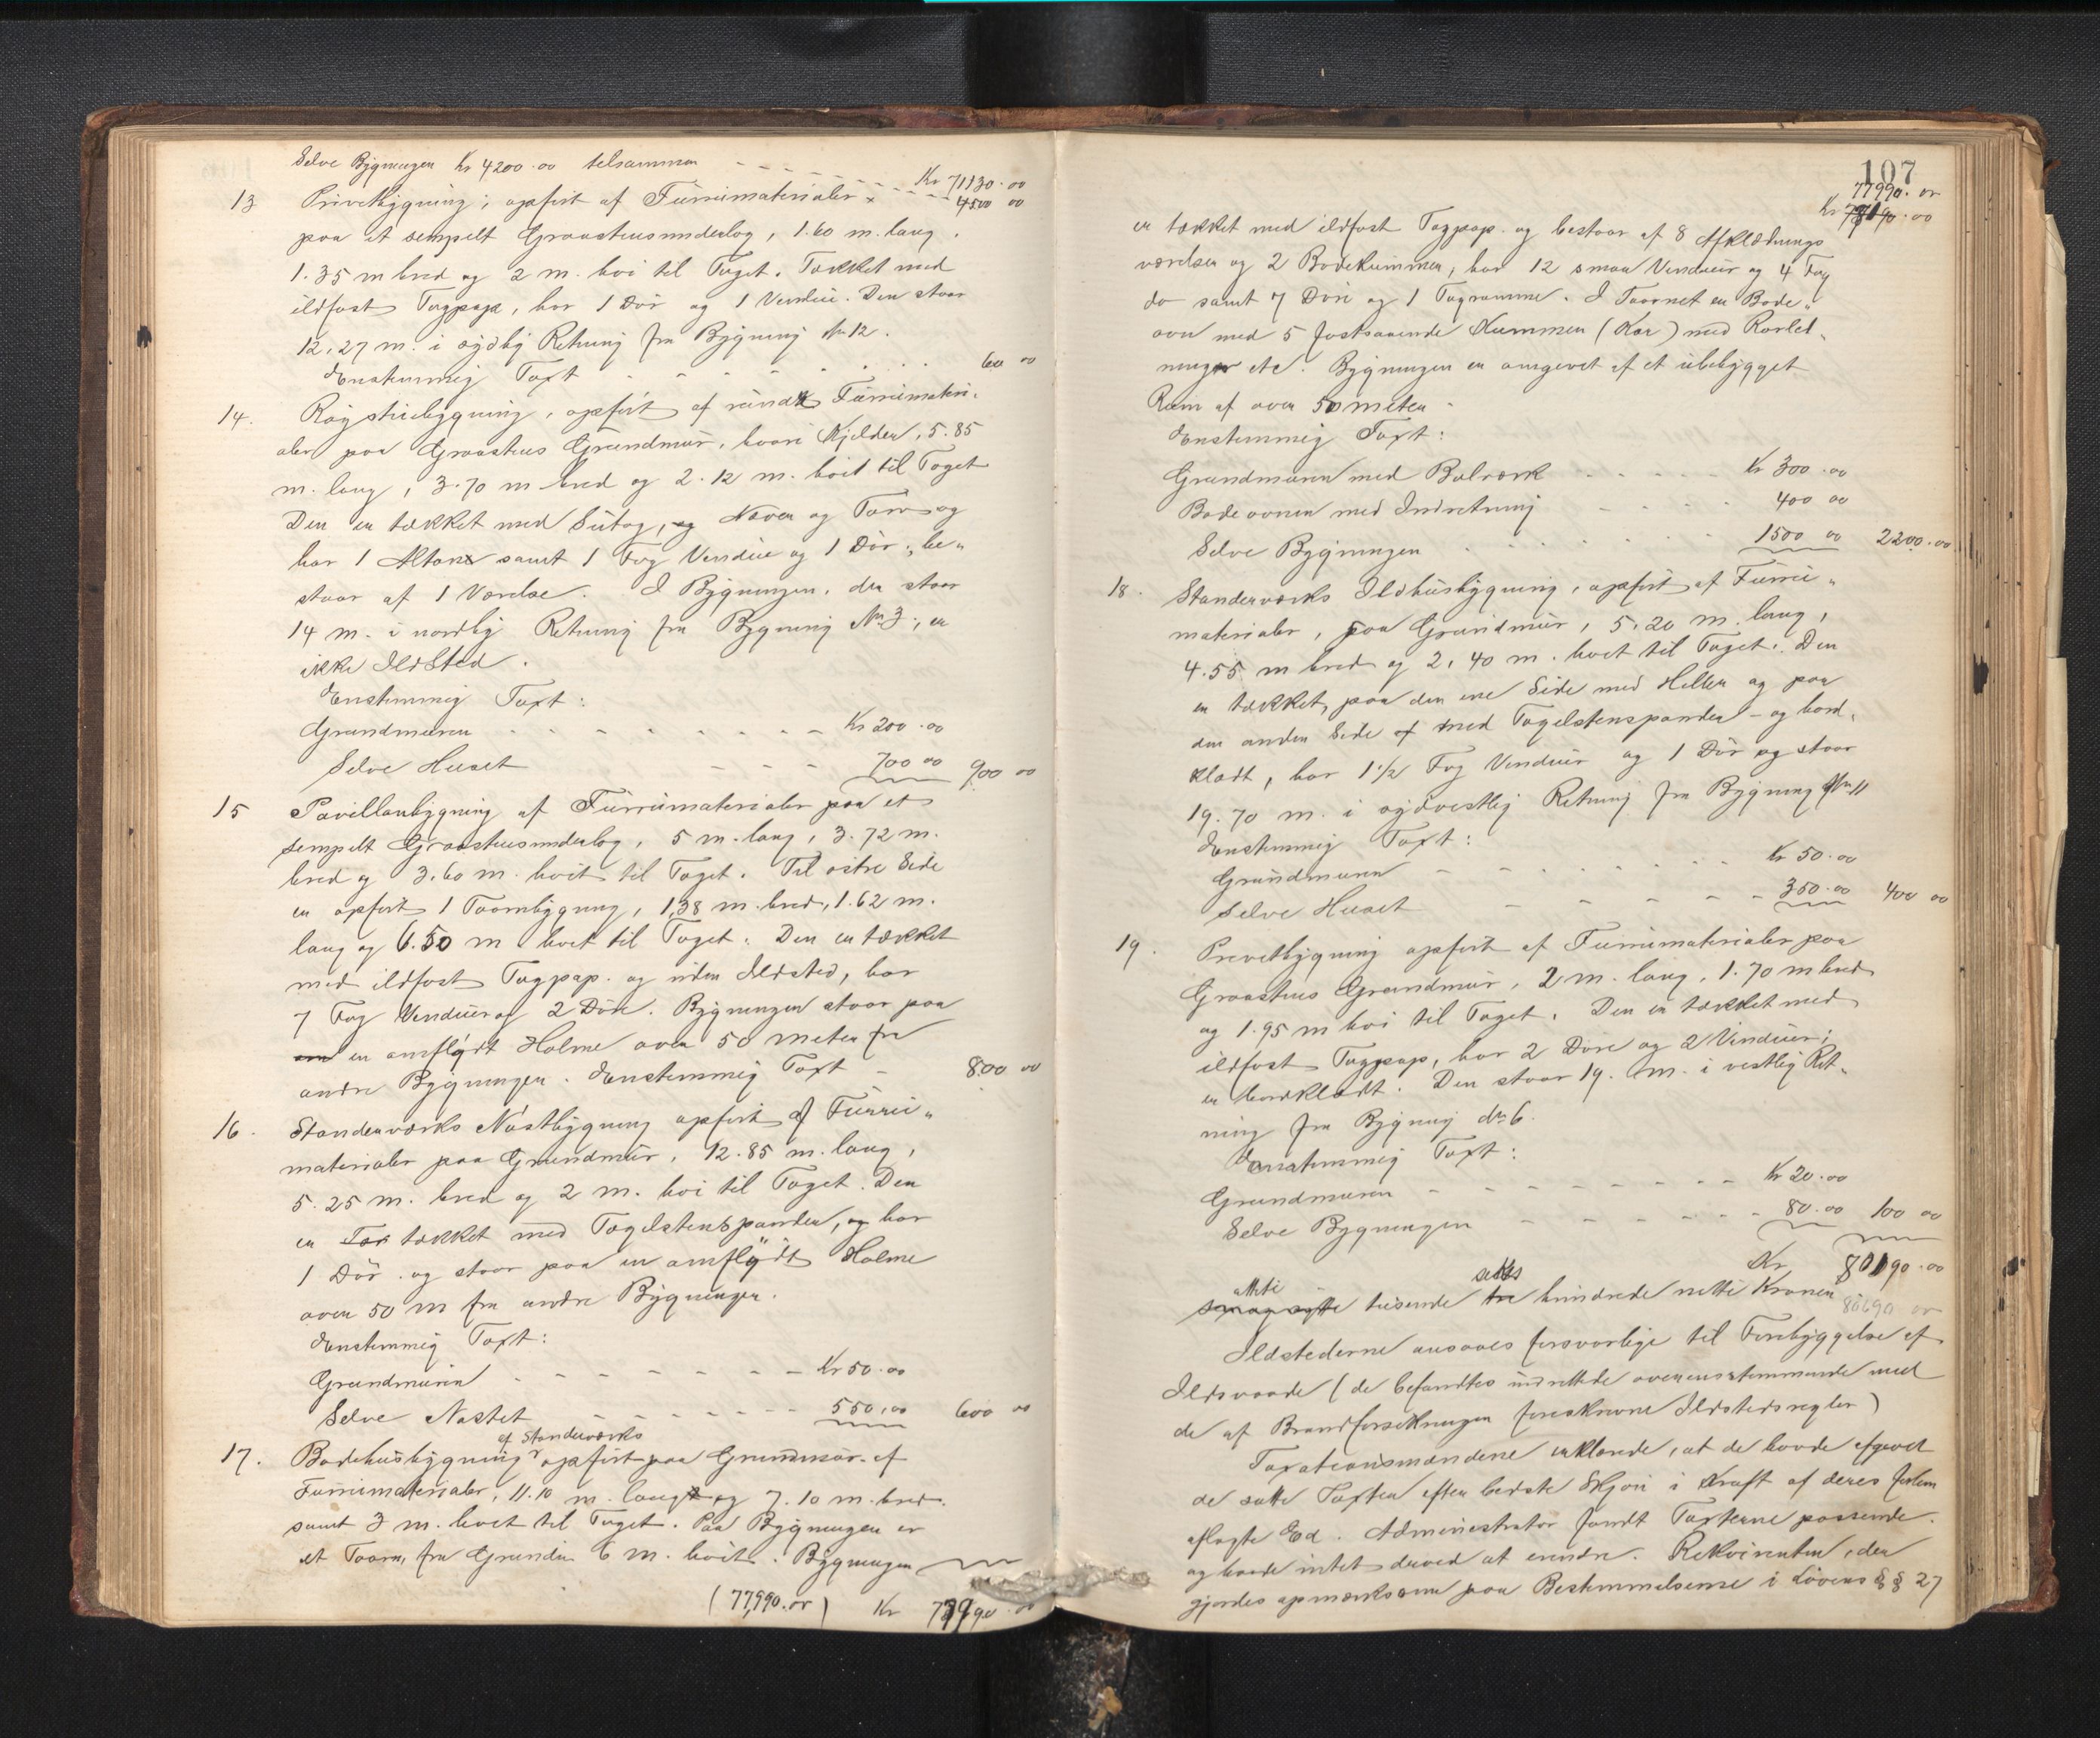 Selve Bygningen Kr 4200.00 tilsammen
Kr 71130.00
4500 00
13 Privetbygning, opført af Furrumaterialer
paa et simpelt Graastensunderlag, 1.60 m. lang,
1.35 m bred og 2 m. høi til Taget. Tækket med
ildfast Tagpap, har 1 Dör og 1 Vindue. Den staar
12,27 m. i sydlig Retning fra Bygning No 12.
Enstemmig Taxt 60 00
14. bygning, opført af Furrumateri-
aler paa Graastens Grundmur, hvori Kjelder, 5.85
m. lang, 3.70 m bred og 2.12 m. høit til Taget
Den er tækket med Sutag, og Næver og Torv og
har 1 Altan samt 1 Fag Vindue og 1 Dör, be-
staar af 1 Værelse. I Bygningen, der staar
14 m. i nordlig Retning fra Bygning No 3, er
ikke Ildsted.
Enstemmig Taxt:
Grundmuren Kr 200.00
Selve Huset 700 00 900 00
15 Pavillonbygning af Furrumaterialer paa et
simpelt Graastensunderlag, 5 m. lang, 3.72 m.
bred og 3.60 m. høit til Taget. Til østre Side
er opført 1 Taarnbygning, 1,38 m. bred, 1.62 m.
lang og 6.50 m høit til Taget. Den er tækket
med ildfast Tagpap. og uden Ildsted, har
7 Fag Vinduer og 2 Döre. Bygningen staar paa
en omflydt Holme over 50 meter fra
andre Bygninger. Enstemmig Taxt 800 00
16. Standerværks Nöstbygning opført af Furru-
materialer paa Grundmur, 12.85 m. lang,
5.25 m. bred og 2 m. høi til Taget. Den
er Tar tækket med Tagelstenspander, og har
1 Dör. og staar paa en omflydt Holme
over 50 m fra andre Bygninger.
Enstemmig Taxt:
Grundmuren Kr 50.00
Selve Nøstet 550,00 600 00
af Standerværks
17. Badehusbygning opført paa Grundmur. af
Furrumaterialer, 11.10 m. lang og 7.10 m. bred.
samt 3 m. høit til Taget. Paa Bygningen er
et Taarn, fra Grunden 6 m. høit. Bygningen
(77,990.or) Kr 77990 00
107
77990. or
Kr 00
er tækket med ildfast Tagpap. og bestaar af 8 Afklædnings
værelser og 2 Badekummer, har 12 smaa Vinduer og 4 Fag
do samt 7 Döre og 1 Tagramme. I Taarnet en Bade-
ovn med 5 fastsaaende Kummer (Kar) med Rørled-
ninger etc. Bygningen er omgivet af et ubebygget
Rum af over 50 meter
Enstemmig Taxt:
Grundmuren med Bolværk Kr 300.00
Badeovnen med Indretning 400 00
Selve Bygningen 1500 00 2200.00
18. Standerværks Ildhusbygning, opført af Furru-
materialer, paa Grundmur, 5.20 m. lang,
4.55 m bred og 2,40 m. høit til Taget. Den
er tækket, paa den ene Side med Heller og paa
den anden Side af med Tagelstenspander - og bord-
klædt, har 1 1/2 Fag Vinduer og 1 Dör og staar
19.70 m. i sydvestlig Retning fra Bygning No 11
Enstemmig Taxt:
Grundmuren Kr 50.00
Selve Huset 350.00 400 00
19. Privetbygning opført af Furrumaterialer paa
Graastens Grundmur, 2 m. lang, 1.70 m bred
og 1.95 m høi til Taget. Den er tækket med
ildfast Tagpap, har 2 Döre og 2 Vinduer;
er bordklædt. Den staar 19. m. i vestlig Ret-
ning fra Bygning No 6.
Enstemmig Taxt:
Grundmuren Kr 20.00
Selve Bygningen 80.00 100 00
Kr 80190.00
otti seks
tusende tre hundrede nitti Kroner 80690 or
Ildstederne ansaaes forsvarlige til Forebyggelse af
Ildsvaade (de befandtes indrettede overensstemmende med
de af Brandforsikringen foreskrevne Ildstedsregler)
Taxationsmændene erklærede, at de havde afgivet
de satte Taxter efter bedste Skjøn i Kraft af deres forhen
aflagte Ed. Administrator fandt Taxterne passende
og havde intet derved at erindre. Rekvirenten, der
gjordes opmærksom paa Bestemmelserne i Lovens §§ 27